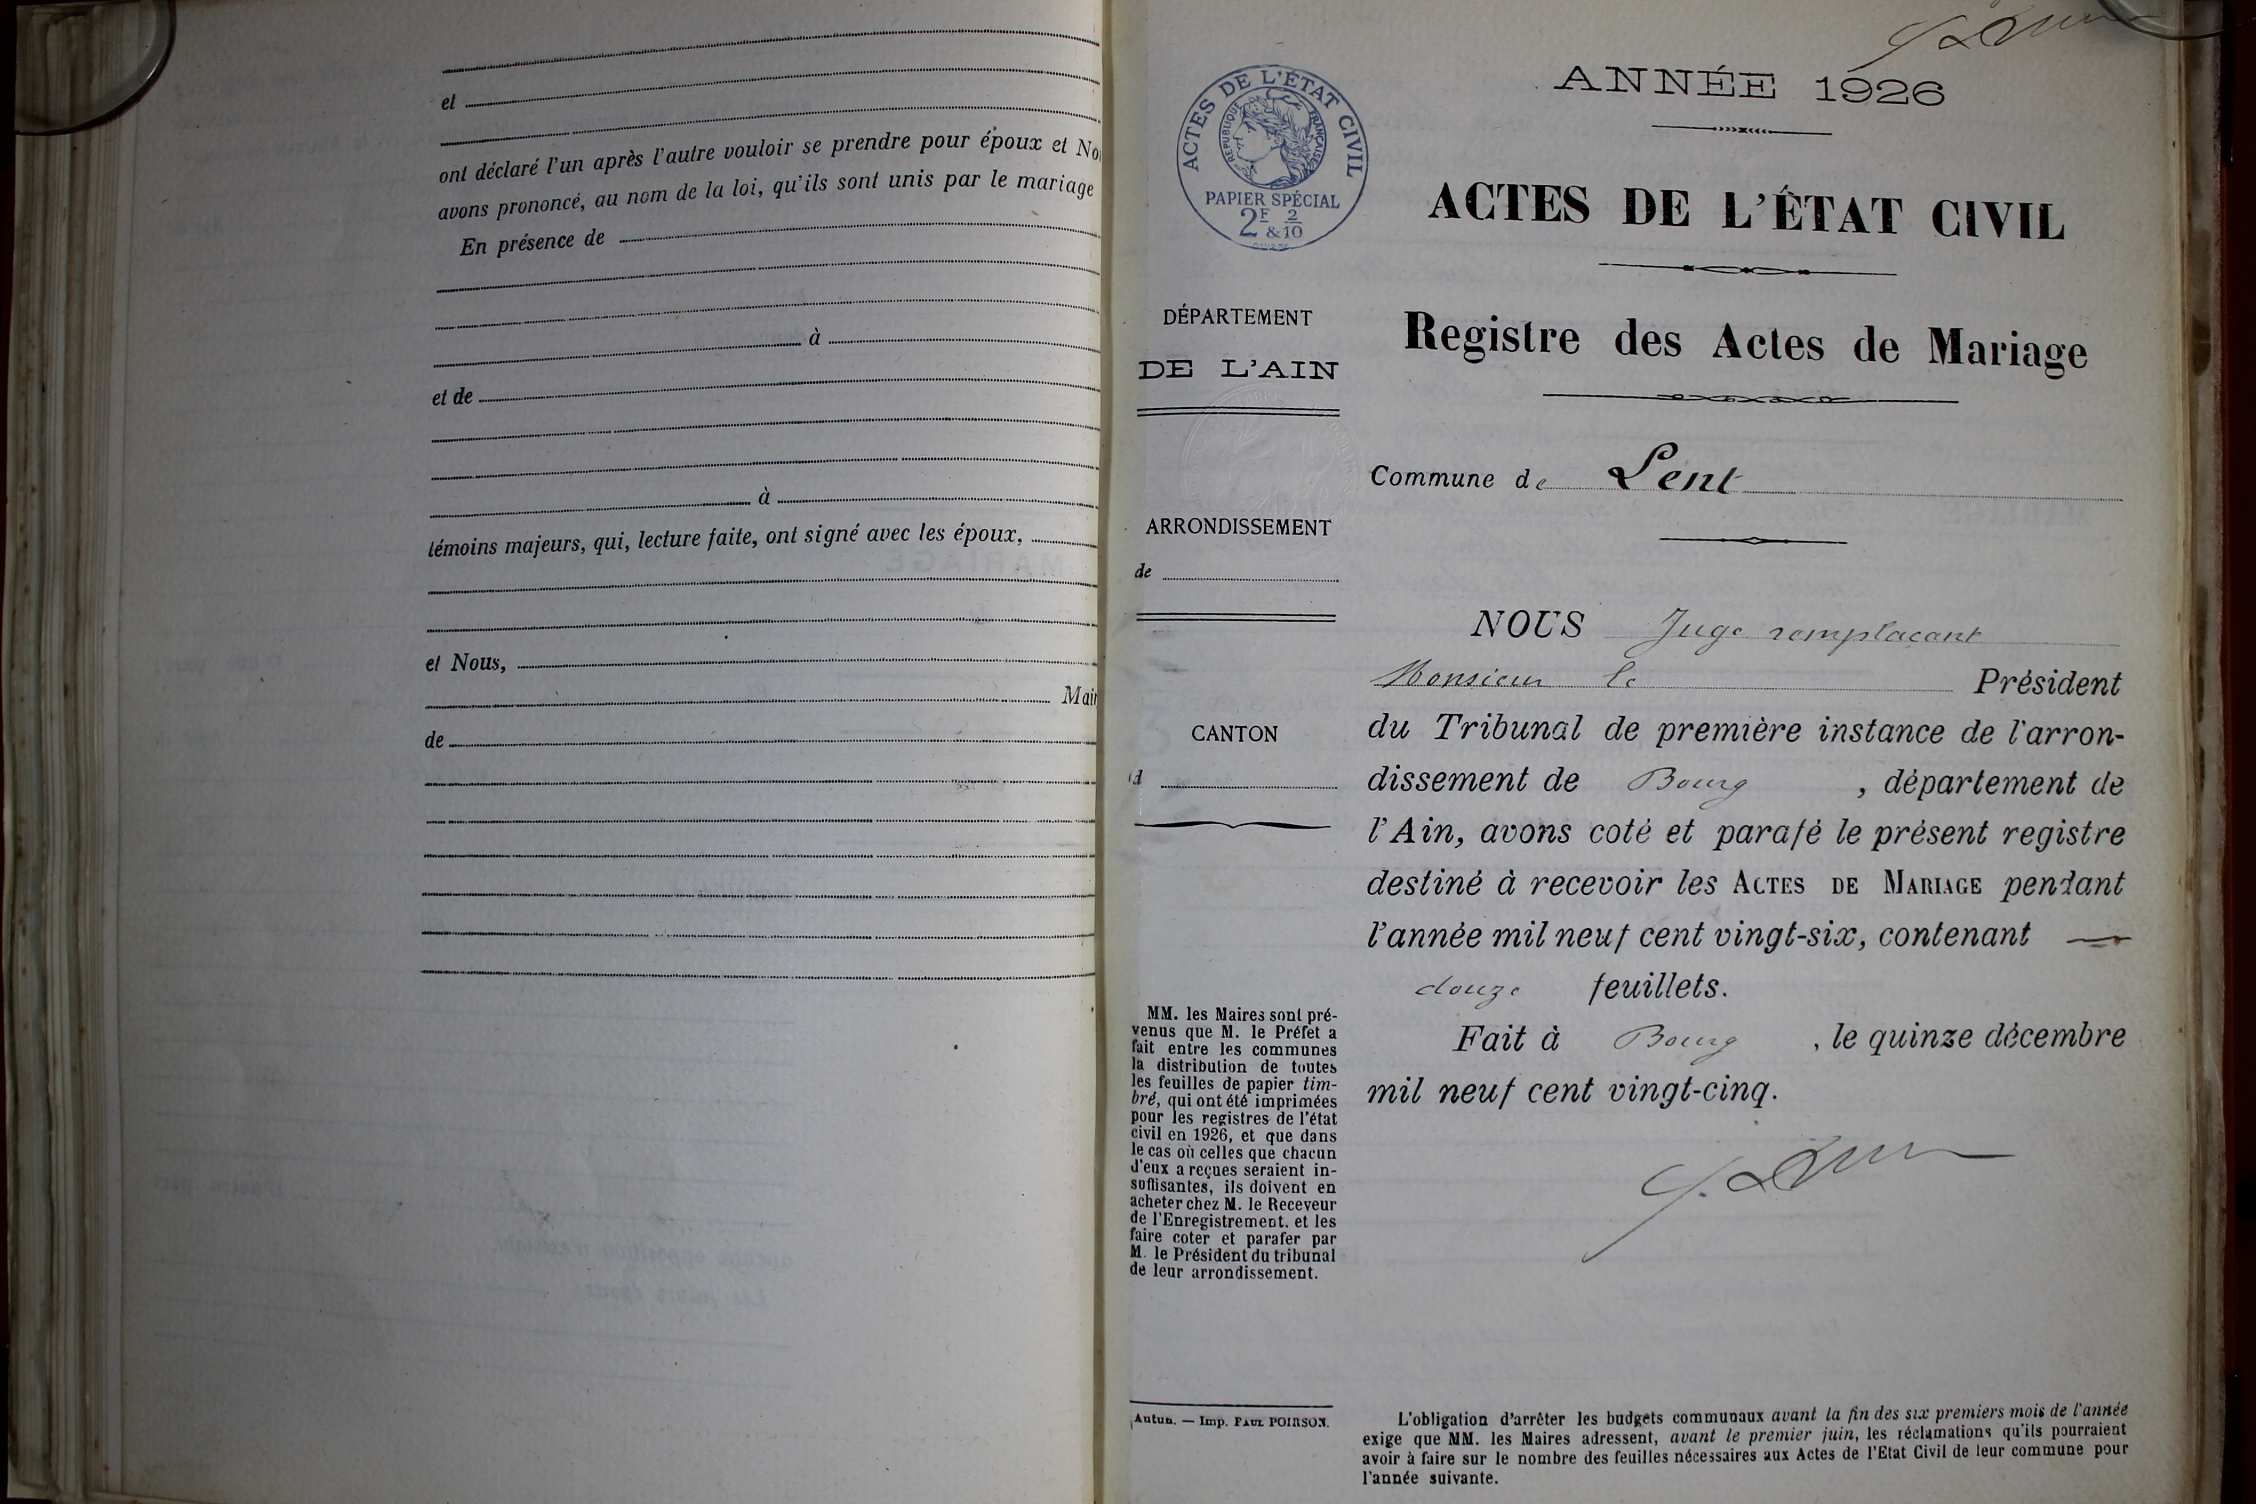 et
ont déclaré l'un après l'autre vouloir se prendre pour époux et No
avons prononcé, au nom de la loi, qu'ils sont unis par le mariage
En présence de
à
et de
à
témoins majeurs, qui, lecture faite, ont signé avec les époux,
et Nous,
Mair
de
ANNÉE 1926
ACTES DE L'ÉTAT CIVIL
RÉPUBLIQUE FRANÇAISE
PAPIER SPÉCIAL
2F & 2/10
ACTES DE L'ÉTAT CIVIL
DÉPARTEMENT
DE L'AIN
Registre des Actes de Mariage
Commune de Lent
ARRONDISSEMENT
de
CANTON
d
NOUS Juge remplaçant
Monsieur le Président
du Tribunal de première instance de l'arron-
dissement de Bourg, département de
l'Ain, avons coté et parafé le présent registre
destiné à recevoir les ACTES DE MARIAGE pendant
l'année mil neuf cent vingt-six, contenant
douze feuillets.
Fait à Bourg, le quinze décembre
mil neuf cent vingt-cinq.
MM. les Maires sont pré-
venus que M. le Préfet a
fait entre les communes
la distribution de toutes
les feuilles de papier tim-
bré, qui ont été imprimées
pour les registres de l'état
civil en 1926, et que dans
le cas où celles que chacun
d'eux a reçues seraient in-
suffisantes, ils doivent en
acheter chez M. le Receveur
de l'Enregistrement, et les
faire coter et parafer par
M. le Président du tribunal
de leur arrondissement.
Autun. — Imp. PAUL POIRSON.
L'obligation d'arrêter les budgets communaux avant la fin des six premiers mois de l'année
exige que MM. les Maires adressent, avant le premier juin, les réclamations qu'ils pourraient
avoir à faire sur le nombre des feuilles nécessaires aux Actes de l'Etat Civil de leur commune pour
l'année suivante.